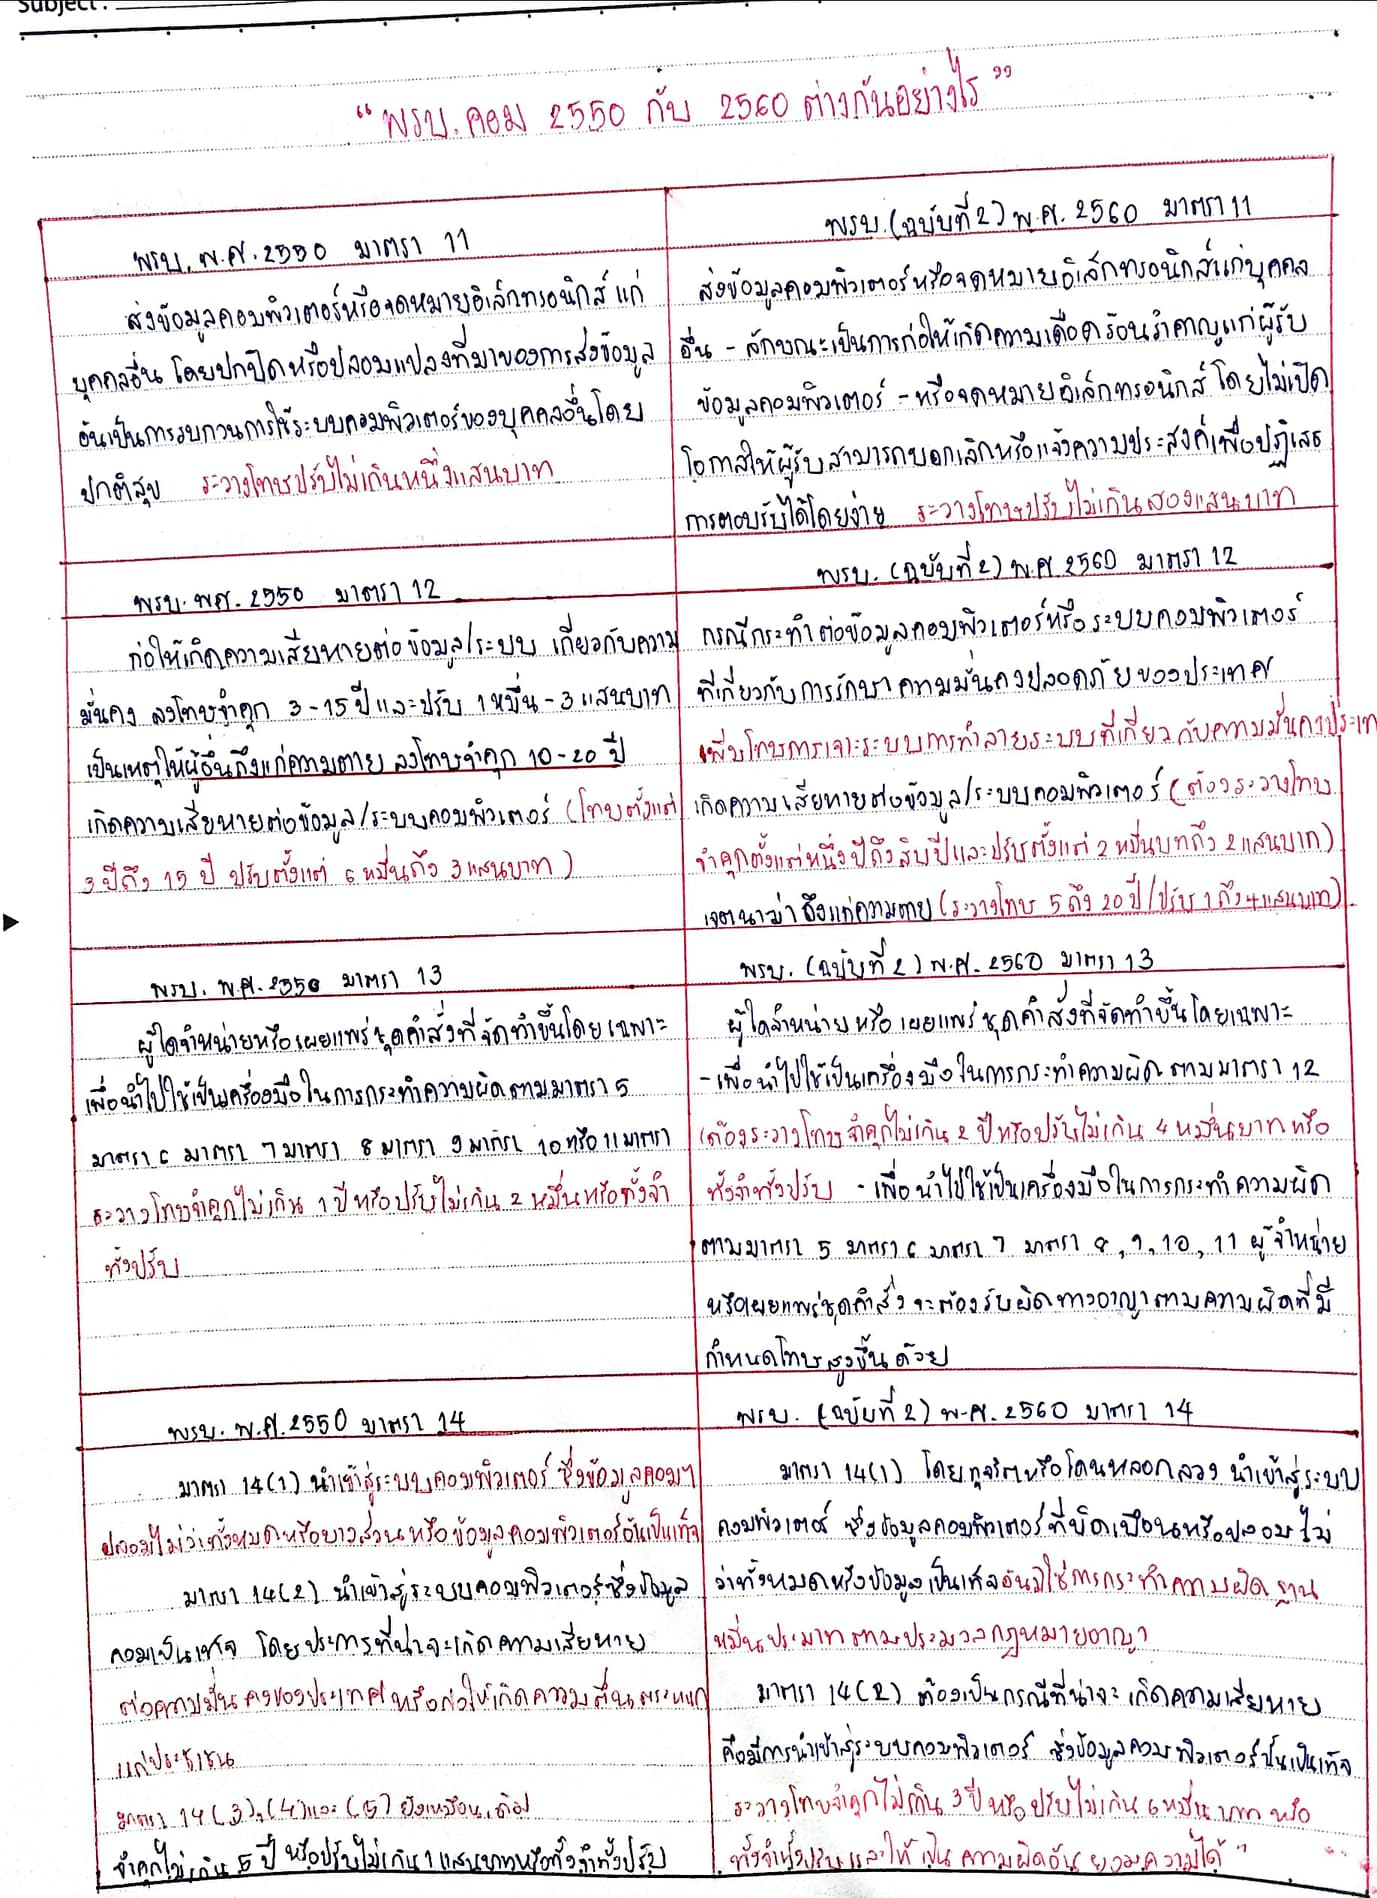 Subject :
“ พรบ. คอม 2550 กับ 2560 ต่างกันอย่างไร ”
พรบ. พ.ศ. 2550 มาตรา 11
ส่งข้อมูลคอมพิวเตอร์หรือจดหมายอิเล็กทรอนิกส์ แก่
บุคคลอื่น โดยปกปิดหรือปลอมแปลงที่มาของการส่งข้อมูล
อันเป็นการรบกวนการใช้ระบบคอมพิวเตอร์ของบุคคลอื่นโดย
ปกติสุข ระวางโทษปรับไม่เกินหนึ่งแสนบาท
พรบ. (ฉบับที่ 2) พ.ศ. 2560 มาตรา 11
ส่งข้อมูลคอมพิวเตอร์หรือจดหมายอิเล็กทรอนิกส์แก่บุคคล
อื่น - ลักษณะเป็นการก่อให้เกิดความเดือดร้อนรำคาญแก่ผู้รับ
ข้อมูลคอมพิวเตอร์ - หรือจดหมายอิเล็กทรอนิกส์ โดยไม่เปิด
โอกาสให้ผู้รับสามารถบอกเลิกหรือแจ้งความประสงค์เพื่อปฏิเสธ
การตอบรับได้โดยง่าย ระวางโทษปรับไม่เกินสองแสนบาท
พรบ. พศ. 2550 มาตรา 12
ก่อให้เกิดความเสียหายต่อข้อมูล/ระบบ เกี่ยวกับความ
มั่นคง ลงโทษจำคุก 3 - 15 ปี และปรับ 1 หมื่น - 3 แสนบาท
เป็นเหตุให้ผู้อื่นถึงแก่ความตาย ลงโทษจำคุก 10 - 20 ปี
เกิดความเสียหายต่อข้อมูล/ระบบคอมพิวเตอร์ (โทษตั้งแต่
3 ปีถึง 15 ปี ปรับตั้งแต่ 6 หมื่นถึง 3 แสนบาท )
พรบ. (ฉบับที่ 2) พ.ศ 2560 มาตรา 12
กรณีกระทำต่อข้อมูลคอมพิวเตอร์หรือระบบคอมพิวเตอร์
ที่เกี่ยวกับการรักษาความมั่นคงปลอดภัยของประเทศ
เพิ่มโทษการเจาะระบบการทำลายระบบที่เกี่ยวกับความมั่นคงประเท
เกิดความเสียหายต่อข้อมูล/ระบบคอมพิวเตอร์ (ต้องระวางโทษ
จำคุกตั้งแต่หนึ่งปีถึงสิบปีและปรับตั้งแต่ 2 หมื่นบทถึง 2 แสนบาท)
เจตนาฆ่า ถึงแก่ความตาย (ระวางโทษ 5 ถึง 20 ปี/ปรับ 1 ถึง 4 แสนบาท)
พรบ. พ.ศ. 2550 มาตรา 13
ผู้ใดจำหน่ายหรือเผยแพร่ชุดคำสั่งที่จัดทำขึ้นโดยเฉพาะ
เพื่อนำไปใช้เป็นเครื่องมือในการกระทำความผิดตามมาตรา 5
มาตรา 6 มาตรา 7 มาตรา 8 มาตรา 9 มาตรา 10 หรือ 11 มาตรา
ระวางโทษจำคุกไม่เกิน 1 ปี หรือปรับไม่เกิน 2 หมื่นหรือทั้งจำ
ทั้งปรับ
พรบ. (ฉบับที่ 2) พ.ศ. 2560 มาตรา 13
ผู้ใดจำหน่ายหรือเผยแพร่ชุดคำสั่งที่จัดทำขึ้นโดยเฉพาะ
- เพื่อนำไปใช้เป็นเครื่องมือในการกระทำความผิดตามมาตรา 12
(ต้องระวางโทษจำคุกไม่เกิน 2 ปีหรือปรับไม่เกิน 4 หมื่นบาทหรือ
ทั้งจำทั้งปรับ - เพื่อนำไปใช้เป็นเครื่องมือในการกระทำความผิด
ตามมาตรา 5 มาตรา 6 มาตรา 7 มาตรา 8, 9, 10, 11 ผู้จำหน่าย
หรือเผยแพร่ชุดคำสั่ง จะต้องรับผิดทางอาญาตามความผิดที่มี
กำหนดโทษสูงขึ้นด้วย
พรบ. พ.ศ. 2550 มาตรา 14
มาตรา 14(1) นำเข้าสู่ระบบคอมพิวเตอร์ ซึ่งข้อมูลคอมฯ
ปลอมไม่ว่าทั้งหมดหรือบางส่วนหรือข้อมูลคอมพิวเตอร์อันเป็นเท็จ
มาตรา 14(2) นำเข้าสู่ระบบคอมพิวเตอร์ซึ่งข้อมูล
คอมเป็นเท็จ โดยประการที่น่าจะเกิดความเสียหาย
ต่อความมั่นคงของประเทศหรือก่อให้เกิดความตื่นตระหนก
แก่ประชาชน
มาตรา 14(3),(4)และ(5) ยังเหมือนเดิม
จำคุกไม่เกิน 5 ปี หรือปรับไม่เกิน 1 แสนบาทหรือทั้งจำทั้งปรับ
พรบ. (ฉบับที่ 2) พ.ศ. 2560 มาตรา 14
มาตรา 14(1) โดยทุจริตหรือโดนหลอกลวง นำเข้าสู่ระบบ
คอมพิวเตอร์ ซึ่งข้อมูลคอมพิวเตอร์ที่บิดเบือนหรือปลอมไม่
ว่าทั้งหมดหรือข้อมูลเป็นเท็จอันมิใช่การกระทำความผิดฐาน
หมิ่นประมาทตามประมวลกฎหมายอาญา
มาตรา 14(2) ต้องเป็นกรณีที่น่าจะเกิดความเสียหาย
คือมีการนำเข้าสู่ระบบคอมพิวเตอร์ ซึ่งข้อมูลคอมพิวเตอร์นั้นเป็นเท็จ
ระวางโทษจำคุกไม่เกิน 3 ปี หรือปรับไม่เกิน 6 หมื่นบาท หรือ
ทั้งจำทั้งปรับและให้เป็นความผิดอันยอมความได้ ”